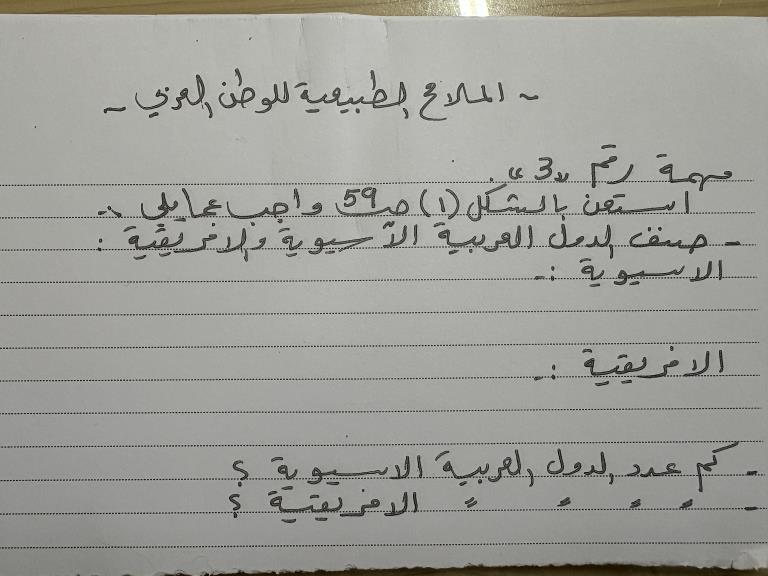 ~ الملامح الطبيعية للوطن العربي ~
مهمة رقم "3".
استعن بالشكل (١) ص 59 واجب عما يلي :-
- صنف الدول العربية الآسيوية والافريقية :
الاسيوية :-
الافريقية :-
- كم عدد الدول العربية الاسيوية ؟
- 〃 〃 〃 〃 الافريقية ؟